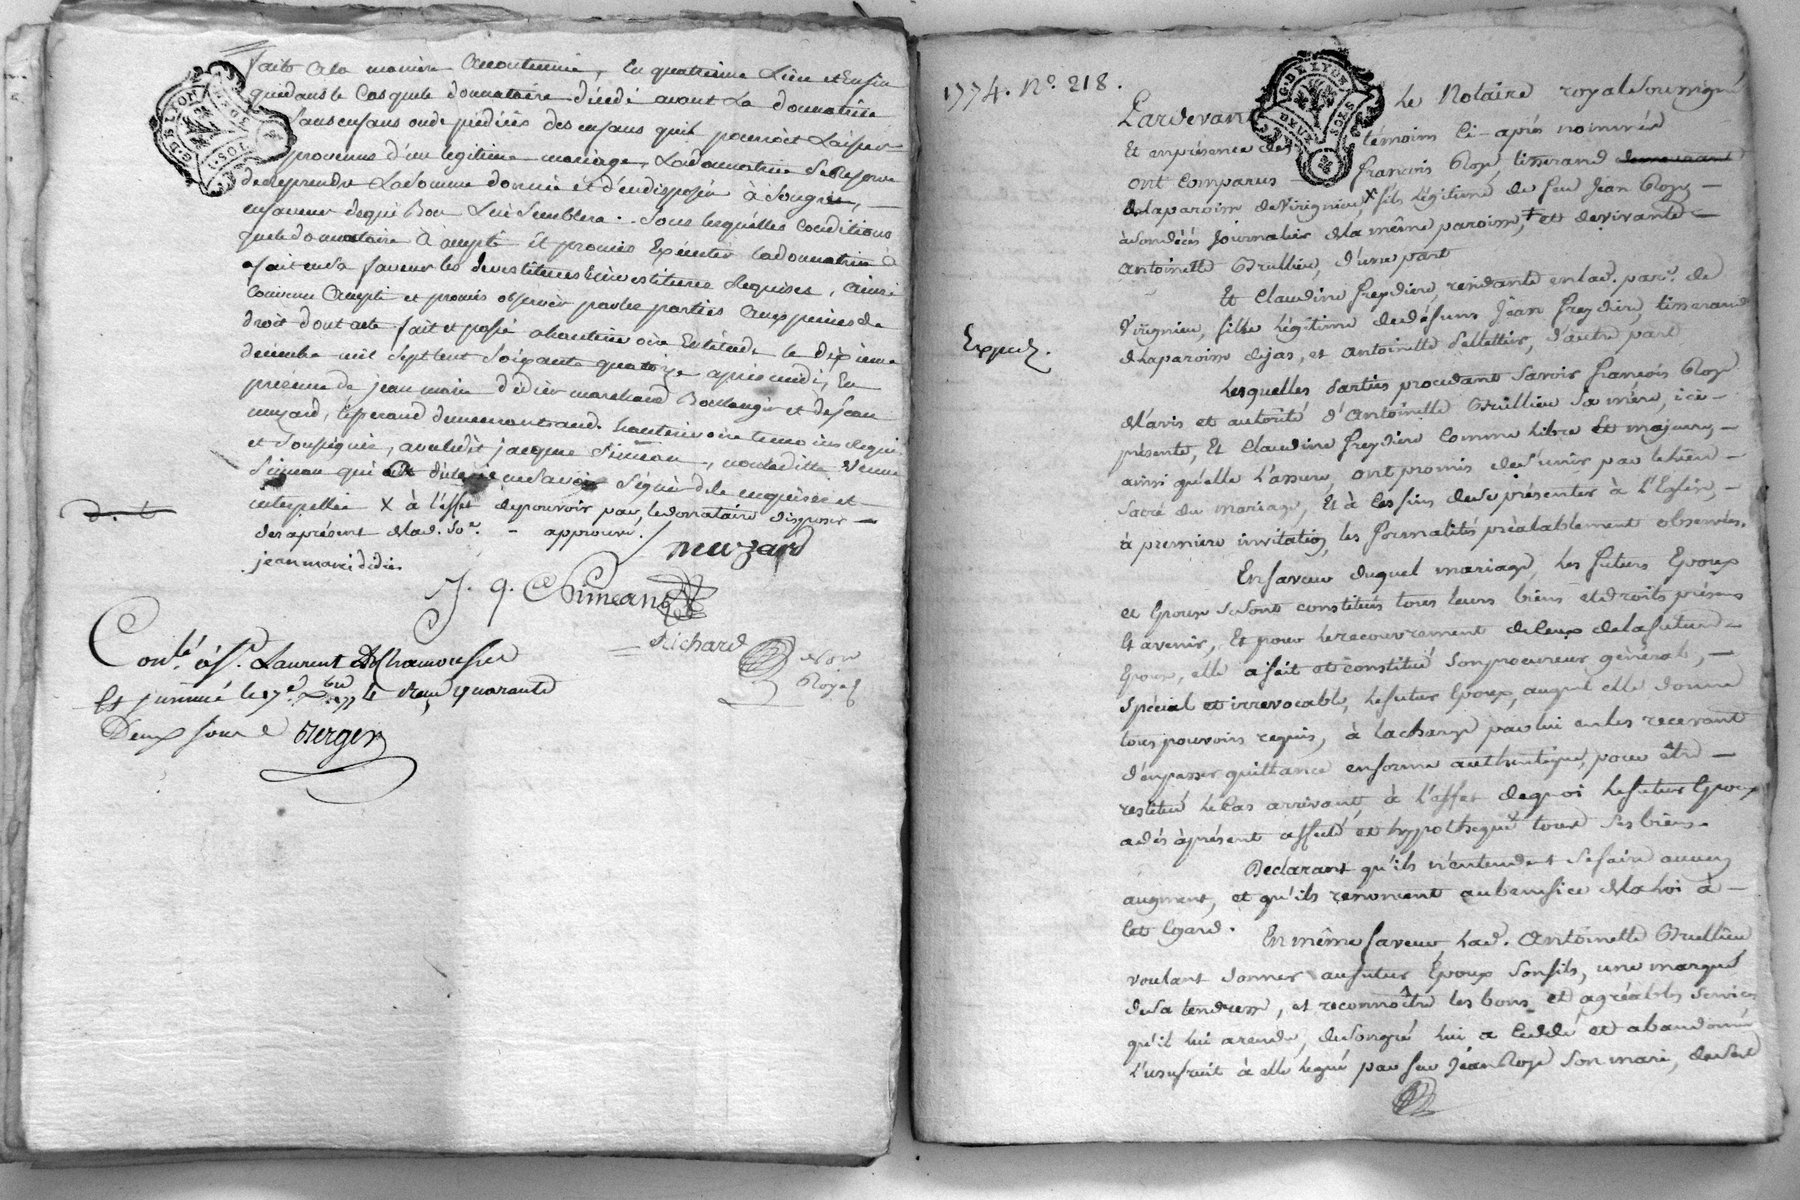 faite a la manière accoutumée, en quatrieme Lieu et Enfin
que dans le Cas que le donnataire décédé avant La donnatrice
Sans enfans ou de prédécés des enfans qu'il pourroit Laisser
provenus d'un legitime mariage, La donnatrice Se Reserve
de Reprendre La Somme donnée et d'en disposer à Son gré, —
en faveur de qui Bon Lui Semblera. Sous lesquelles Conditions
que le donnataire à accepté Et promis Exécuter La donnatrice à
fait en sa faveur les devestitures Et investitures Requises, ainsi
Convenu accepté et promis observer par les parties aux peines de
droit dont acte fait et passé a hauterivoire En l'étude le dixieme
décembre mil Sept Cent Soixante quatorze après midi, En
présence de jean marie didier marchand Boulanger et de jean
muzard, tisserand demeurants a hauterivoire temoins requis
et Soussignés, avec ledit jacque Simeon, non ladite Veuve
Simeon qui a déclaré ne Savoir Signé de ce enquise et
interpellée X à l'effet de pouvoir par le donataire disposer —
des aprésent de lad. So.e - approuvé.
d. t
jean marie didier
muzard
J. q. Simeand
Richard
Not
Royal
Con.lé à S.t Laurent de Chamousset
Et insinué le 17.e Xbre 1774 Reçu quarante
Deux sous Berger
G. DE LYON
DEUX SOLS
1774. N.o 218.
G. DE LYON
DEUX SOLS
Pardevant Le Notaire royal Soussigné
Et en présence des témoins Ci-après nommés
ont Comparus François Roy, tisserand demeurant
de la paroisse de Virignieu, X fils légitime de feu Jean Roy, —
à Son décès Journalier de la même paroisse, + et de vivante —
Antoinette Brullieu, d'une part
Et Claudine Freydiere, résidante en lad. par.e de
Virignieu, fille légitime de défunts Jean Freydiere, tisserand
Exped.
de la paroisse de jas, et Antoinette Pellettier, d'autre part
Lesquelles Parties procédant Savoir François Roy
de l'avis et autorité d'Antoinette Brullieu Sa mère, ici —
présente, Et Claudine Freydiere Comme libre Et majeure, —
ainsi qu'elle l'assure, ont promis de S'unir par le lien —
Sacré du mariage, Et à Ces fins de Se présenter à L'Eglise, —
à premiere invitation, les formalités préalablement observées.
En faveur duquel mariage, les futurs Epoux
et Epouse Se Sont Constitués tous leurs biens et droits présens
Et avenir, Et pour le recouvrement de Ceux de la future —
Epouse, elle a fait et Constitué Son procureur général, —
Spécial et irrévocable, le futur Epoux, auquel elle donne
tous pouvoirs requis, à la charge par lui en les recevant
d'en passer quittance en forme authentique, pour être —
restitué le Cas arrivant, à l'effet de quoi le futur Epoux
a dès à présent affecté et hypothéqué tous Ses biens.
Declarant qu'ils n'entendent Se faire aucun
augment, et qu'ils renoncent au benefice de la Loi à —
Cet Egard.
En même faveur Lad. Antoinette Brullieu,
voulant donner au futur Epoux Son fils, une marque
de Sa tendresse, et reconnoître les bons et agréables Services
qu'il lui a rendu, de Son gré lui a Cédé et abandonné
L'usufruit à elle légué par feu Jean Roy Son mari, de Sad